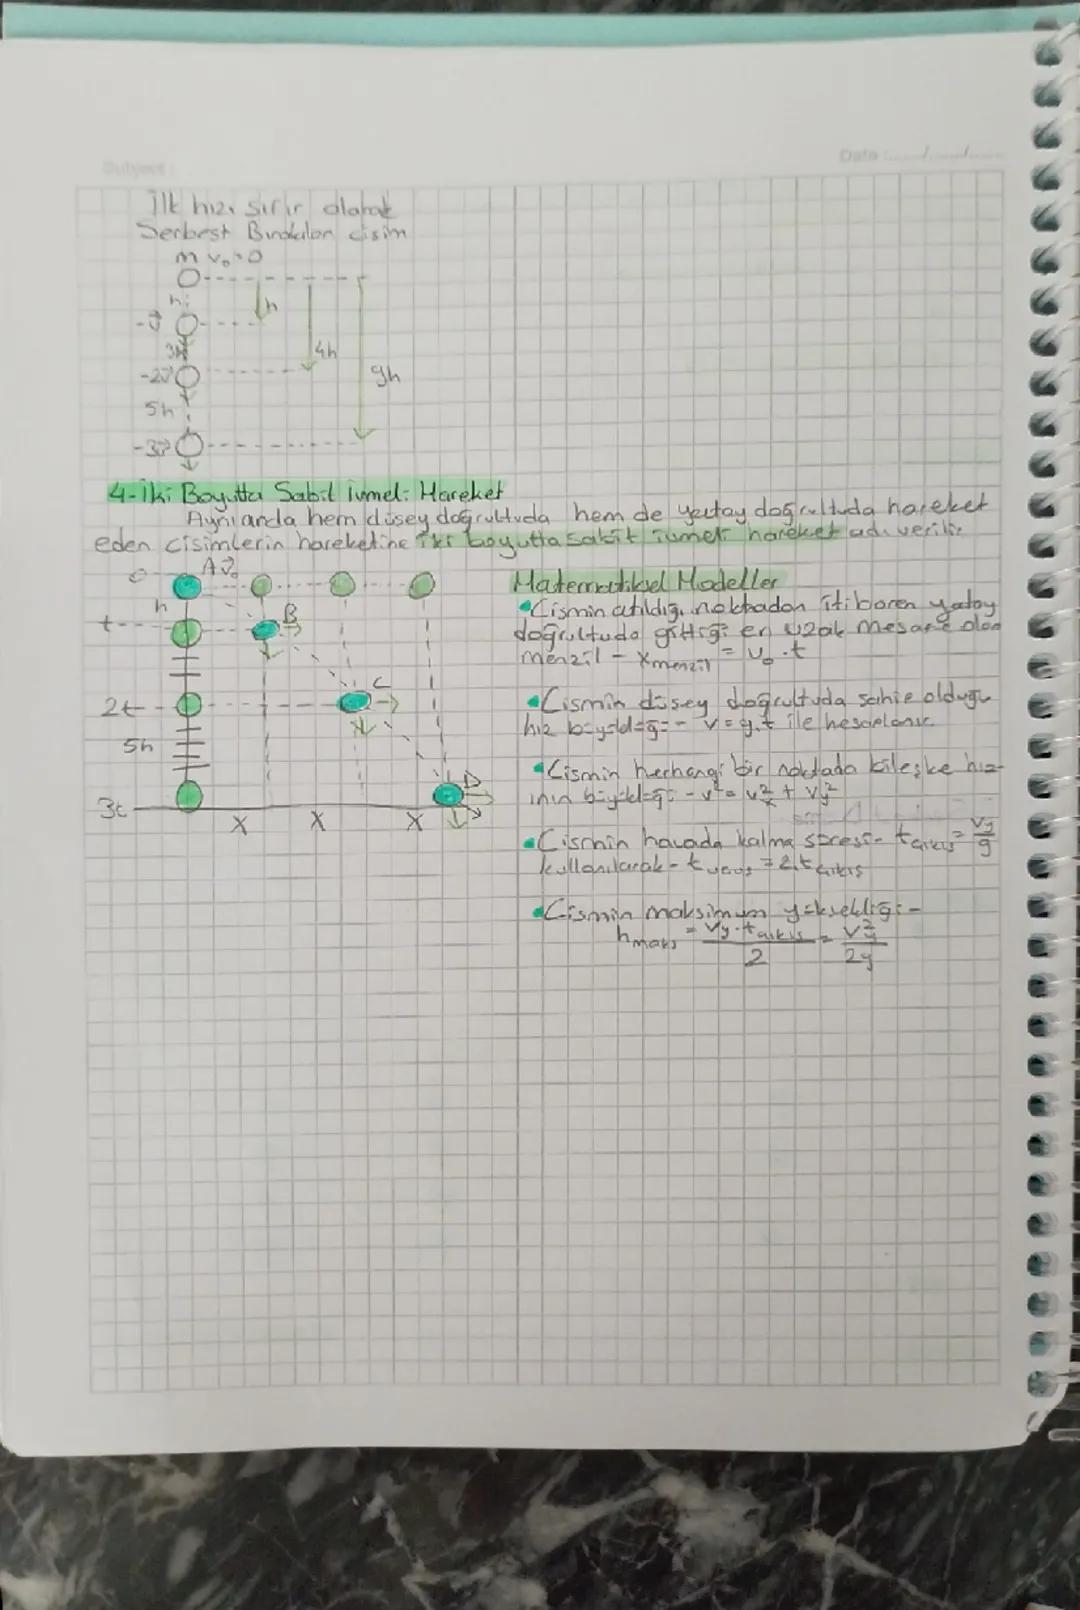 Subject:
Date :....../....../......
İlk hızı sıfır olarak
Serbest Bırakılan cisim
m v₀=0
h
h
-v⃗
3h
4h
-2v⃗
9h
5h
-3v⃗
4-İki Boyutta Sabit İvmeli Hareket
Aynı anda hem düşey doğrultuda hem de yatay doğrultuda hareket
eden cisimlerin hareketine iki boyutta sabit ivmeli hareket adı verilir.
0 A v⃗₀
h
t
B
C
2t
5h
D
3t
X X X
Matematiksel Modeller
•Cismin atıldığı noktadan itibaren yatay
doğrultuda gittiği en uzak mesafe olan
menzil - Xmenzil = v₀.t
•Cismin düşey doğrultuda sahip olduğu
hız büyüklüğü - v=g.t ile hesaplanır.
•Cismin herhangi bir noktada bileşke hız-
ının büyüklüğü - v²= vₓ² + vy²
•Cismin havada kalma süresi- tçıkış= vy/g
kullanılarak - tuçuş = 2.tçıkış
•Cismin maksimum yüksekliği -
hmaks = vy.tçıkış/2 = vy²/2g